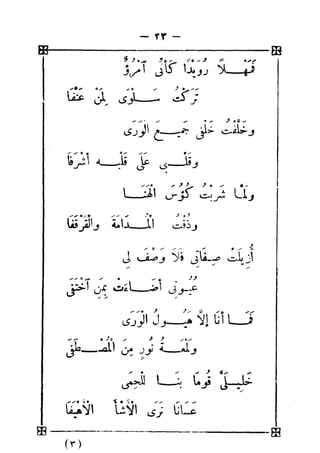 — ٢٣ —
فَمَهْلًا رُوَيْدًا كَأَنِّى آمْرُؤٌ
تَرَكْتُ سَلْوَى لِمَنْ عَنَّفَا
وخَلَّفْتُ خَلْفِى جَمِيعَ الْوَرَى
وقَلْبِى عَلَى قَلْبِهِ أَشْرَفَا
ولَمَّا شَرِبْتُ كُؤُسَ الْهَنَا
وذُقْتُ الْمُدَامَةَ والْقَرْقَفَا
أُزِيلَتْ صِفَاتِى فَلَا وَصْفَ لِى
عُيُونِى أَضَاءَتْ بِمَنِ آخْتَفَى
فَمَا أَنَا إِلَّا هَيُولَ الْوَرَى
ولَمْعَةُ نُورٍ مِنَ الْمُصْطَفَى
خَلِيلَىَّ قُومَا بِنَا لِلْحِمَى
عَسَانَا نَرَى الْأَشْنَأَ الْأَهْيَفَا
(٣)